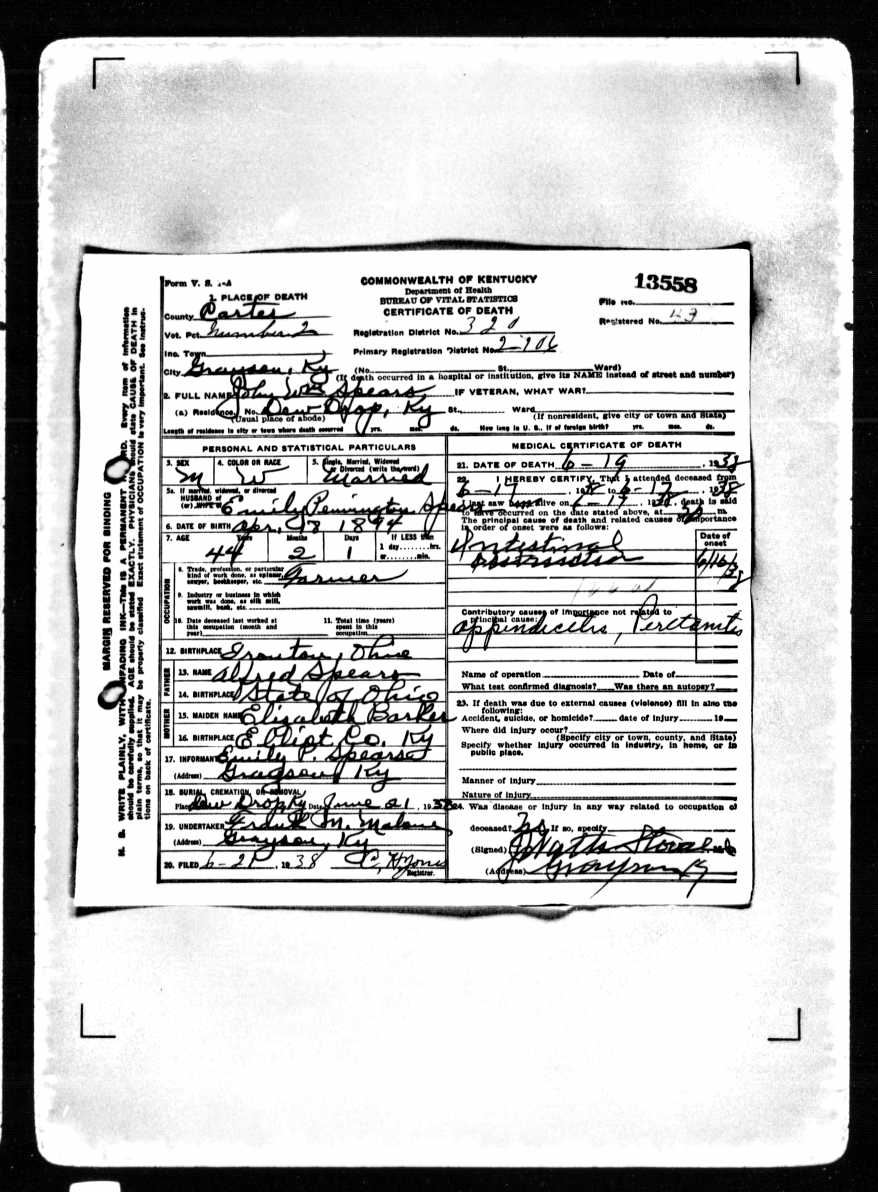 Form V. S. 1-A
COMMONWEALTH OF KENTUCKY
Department of Health
BUREAU OF VITAL STATISTICS
CERTIFICATE OF DEATH
13558
File No.
Registered No. 43
1. PLACE OF DEATH
County Carter
Vot. Pct. Number 2
Registration District No. 320
Inc. Town
Primary Registration District No. 2906
City Grayson, Ky (No. St., Ward)
(If death occurred in a hospital or institution, give its NAME instead of street and number)
2. FULL NAME John Wm Spears IF VETERAN, WHAT WAR?
(a) Residence, No. Dew Drop, Ky St., Ward
(Usual place of abode) (If nonresident, give city or town and State)
Length of residence in city or town where death occurred yrs. mos. ds. How long in U. S., if of foreign birth? yrs. mos. ds.
PERSONAL AND STATISTICAL PARTICULARS
3. SEX M
4. COLOR OR RACE W
5. Single, Married, Widowed or Divorced (write the word) Married
5a. If married, widowed, or divorced
HUSBAND of
(or) WIFE of Emily Pennington Spears
6. DATE OF BIRTH Apr, 18 1894
7. AGE Years Months Days If LESS than
44 2 1 1 day........hrs.
or........min.
OCCUPATION
8. Trade, profession, or particular
kind of work done, as spinner,
sawyer, bookkeeper, etc. Farmer
9. Industry or business in which
work was done, as silk mill,
sawmill, bank, etc.
10. Date deceased last worked at
this occupation (month and
year)
11. Total time (years)
spent in this
occupation
12. BIRTHPLACE Ironton, Ohio
FATHER
13. NAME Alfred Spears
14. BIRTHPLACE State of Ohio
MOTHER
15. MAIDEN NAME Elizabeth Barker
16. BIRTHPLACE Elliot Co. Ky
17. INFORMANT Emily P. Spears
(Address) Grayson, Ky
18. BURIAL, CREMATION, OR REMOVAL
Place Dew Drop Ky Date June 21, 1938
19. UNDERTAKER M. Malone
(Address) Grayson, Ky
20. FILED 6-21, 1938 C. H. Jones
Registrar.
MEDICAL CERTIFICATE OF DEATH
21. DATE OF DEATH 6-19, 1938
22. I HEREBY CERTIFY, That I attended deceased from
6-17, 1938 to 6-17, 1938
I last saw h alive on 6-17, 1938, death is said
to have occurred on the date stated above, at m.
The principal cause of death and related causes of importance
in order of onset were as follows:
Date of
onset
Intestinal
obstruction
6/16/38
Contributory causes of importance not related to
principal cause:
appendicitis, Peretanitis
Name of operation Date of
What test confirmed diagnosis? Was there an autopsy?
23. If death was due to external causes (violence) fill in also the
following:
Accident, suicide, or homicide? date of injury 19
Where did injury occur?
(Specify city or town, county, and State)
Specify whether injury occurred in industry, in home, or in
public place.
Manner of injury
Nature of injury
24. Was disease or injury in any way related to occupation of
deceased? No If so, specify
(Signed) J Watts Stovall M.D.
(Address) Grayson Ky
MARGIN RESERVED FOR BINDING
N. B. WRITE PLAINLY, WITH UNFADING INK—THIS IS A PERMANENT RECORD. Every item of information
should be carefully supplied. AGE should be stated EXACTLY. PHYSICIANS should state CAUSE OF DEATH in
plain terms, so that it may be properly classified. Exact statement of OCCUPATION is very important. See instruc-
tions on back of certificate.